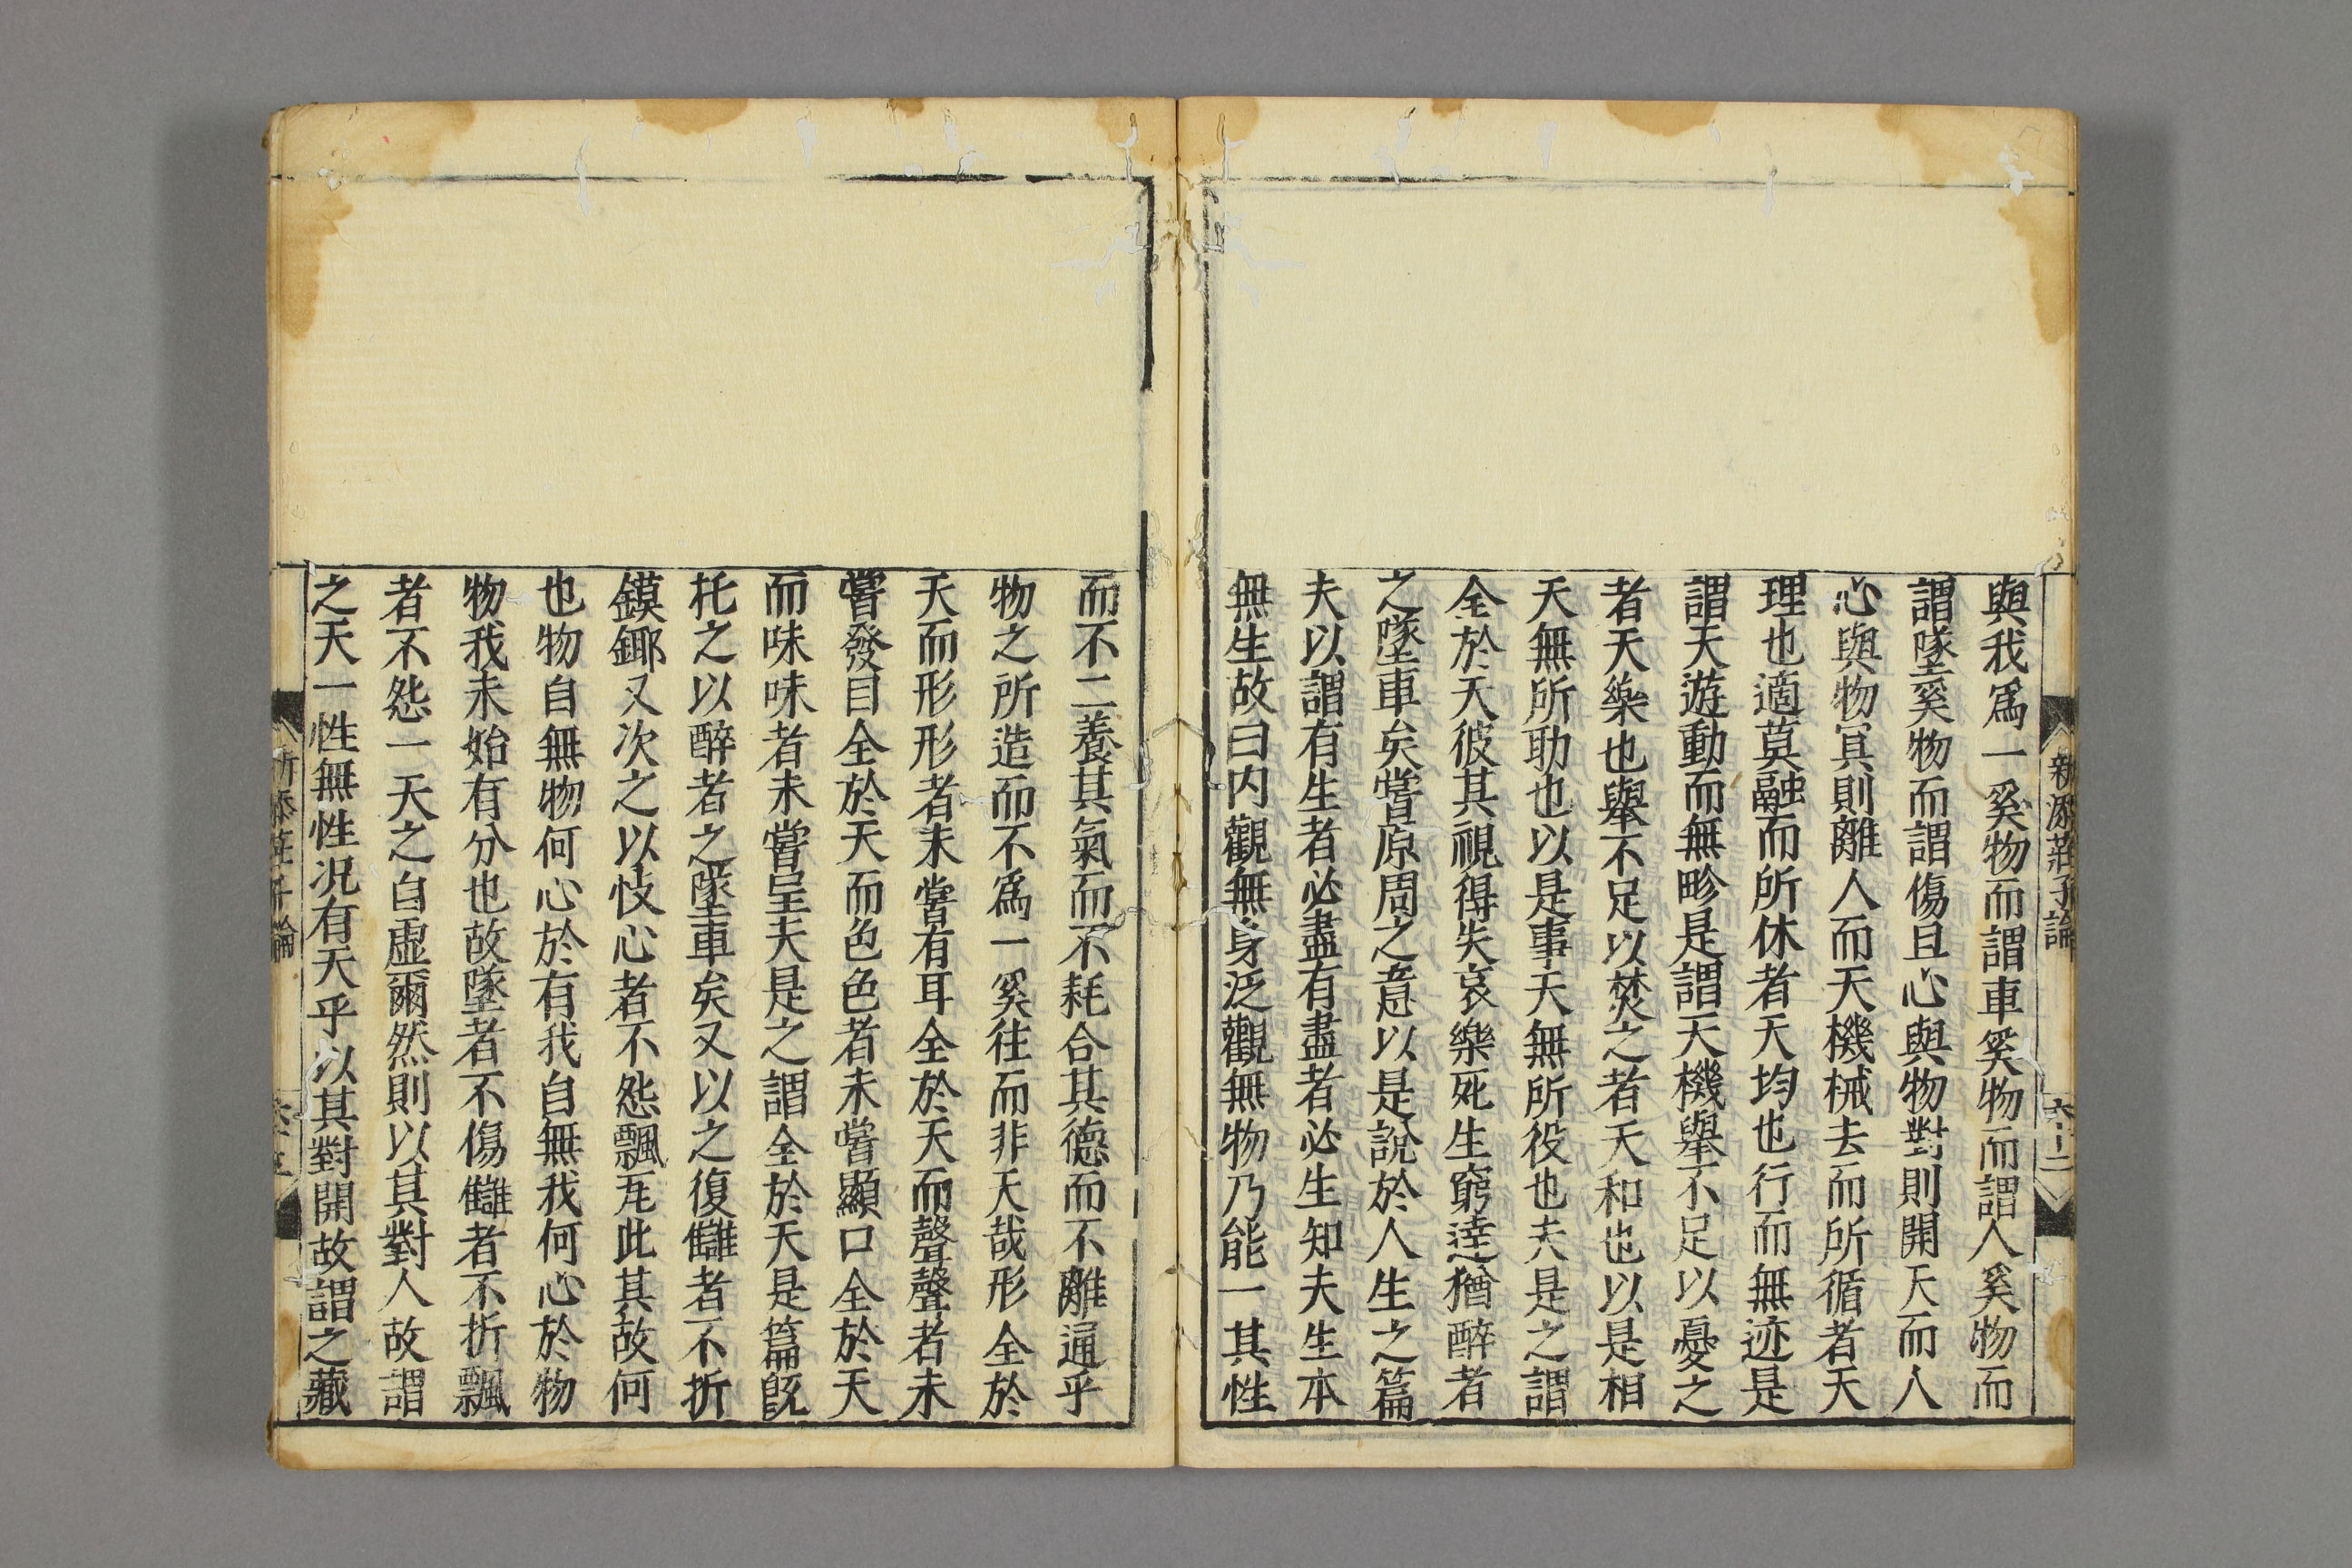 新添莊子論
六ノ十二
與我爲一奚物而謂車奚物而謂人奚物而
謂墜奚物而謂傷且心與物對則開天而人
心與物冥則離人而天機械去而所循者天
理也適莫融而所休者天均也行而無迹是
謂天遊動而無畛是謂天機舉不足以憂之
者天樂也舉不足以焚之者天和也以是相
天無所助也以是事天無所役也夫是之謂
全於天彼其視得失哀樂死生窮達猶醉者
之墜車矣嘗原周之意以是說於人生之篇
夫以謂有生者必盡有盡者必生知夫生本
無生故曰内觀無身泛觀無物乃能一其性
而不二養其氣而不耗合其德而不離通乎
物之所造而不爲一奚往而非天哉形全於
天而形形者未嘗有耳全於天而聲聲者未
嘗發目全於天而色色者未嘗顯口全於天
而味味者未嘗呈夫是之謂全於天是篇旣
托之以醉者之墜車矣又以之復讎者不折
鏌鎁又次之以忮心者不怨飄瓦此其故何
也物自無物何心於有我自無我何心於物
物我未始有分也故墜者不傷讎者不折飄
者不怨一天之自虛爾然則以其對人故謂
之天一性無性况有天乎以其對開故謂之藏
新添莊子論